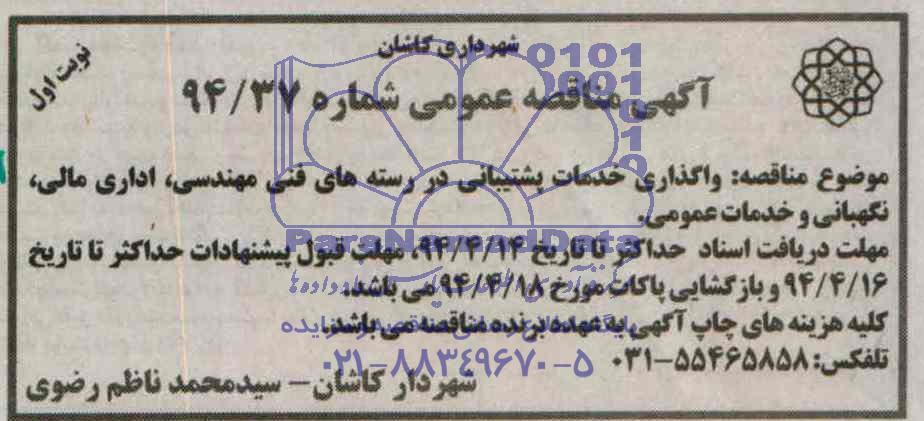 شهرداری کاشان
نوبت اول
آگهی مناقصه عمومی شماره ۹۴/۳۷
موضوع مناقصه: واگذاری خدمات پشتیبانی در رسته های فنی مهندسی، اداری مالی،
نگهبانی و خدمات عمومی.
مهلت دریافت اسناد حداکثر تا تاریخ ۹۴/۴/۱۴، مهلت قبول پیشنهادات حداکثر تا تاریخ
۹۴/۴/۱۶ و بازگشایی پاکات مورخ ۹۴/۴/۱۸ می باشد.
کلیه هزینه های چاپ آگهی به عهده برنده مناقصه می باشد.
تلفکس: ۵۵۴۶۵۸۵۸-۰۳۱
شهردار کاشان – سیدمحمد ناظم رضوی
0101
0101
10
1
0
ParaNamadData
۰۲۱-۸۸۳۴۹۶۷۰-۵